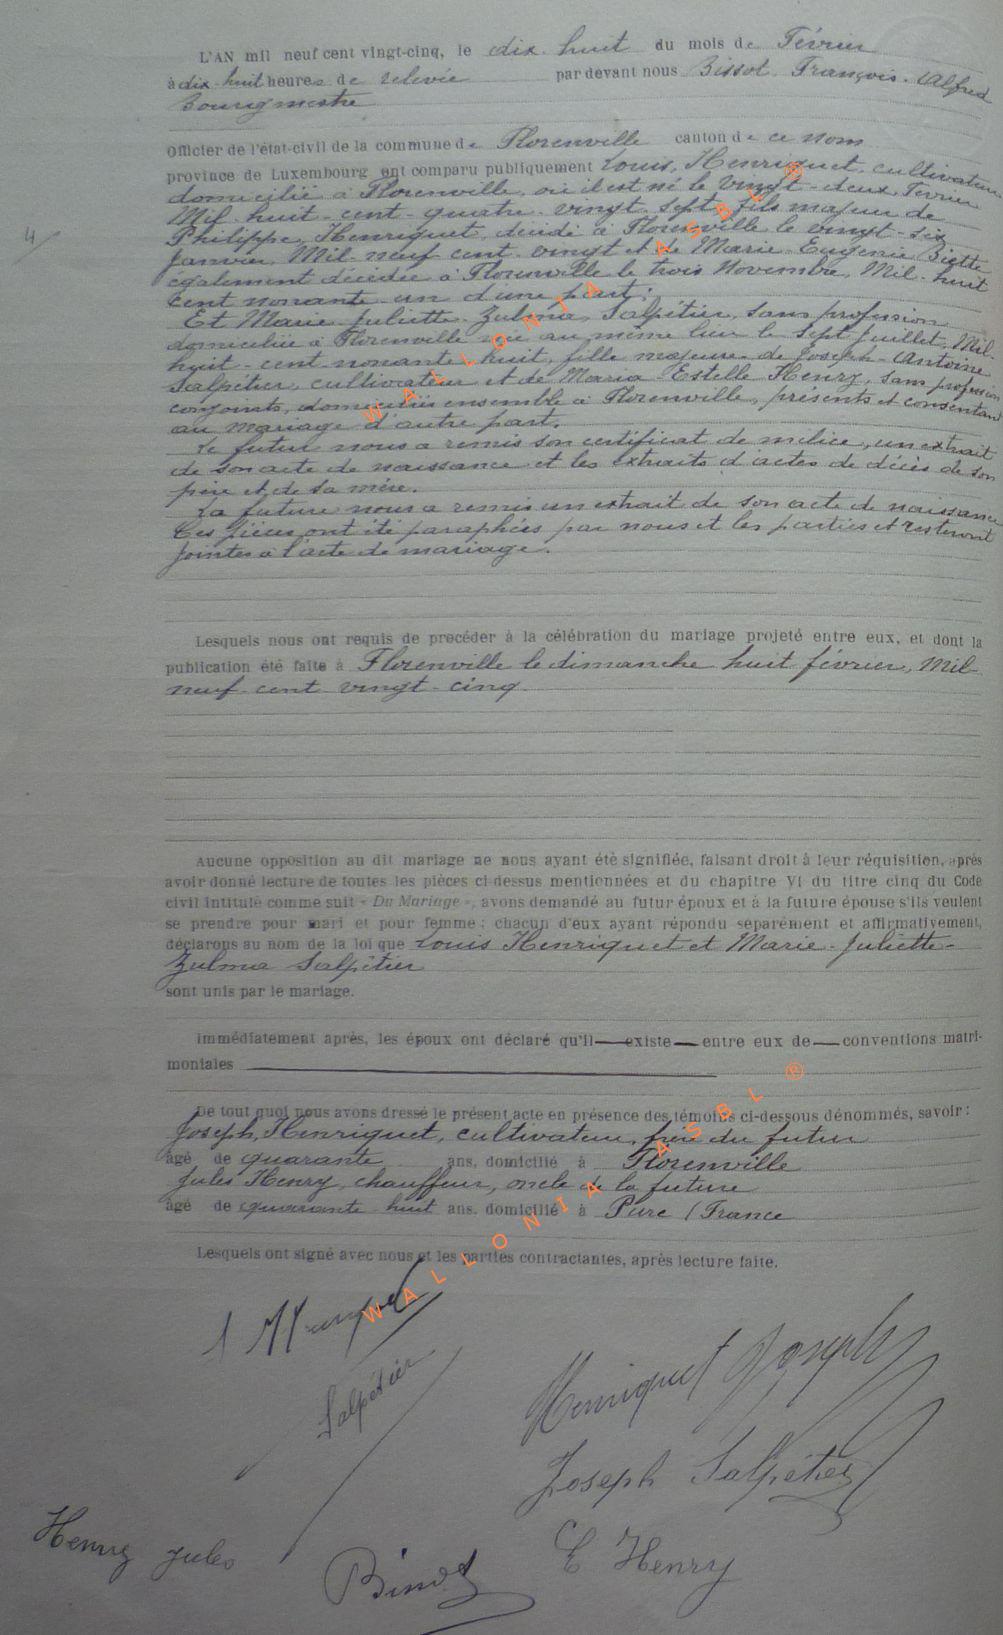 L'AN mil neuf cent vingt-cinq, le dix-huit du mois de Février
à dix-huit heures de relevée par devant nous Bissot, François-Alfred
Bourgmestre
Officier de l'état-civil de la commune de Florenville canton de ce nom
province de Luxembourg ont comparu publiquement Louis, Henriquet, cultivateur
domicilié à Florenville, où il est né le vingt-deux Février
Mil-huit-cent-quatre-vingt-sept, fils majeur de
Philippe, Henriquet, décédé à Florenville le vingt-six
Janvier, Mil-neuf cent-vingt et de Marie-Eugénie Biette
également décédée à Florenville le trois Novembre, Mil-huit
cent nonante-un d'une part;
Et Marie-Juliette-Zulma, Salpétier, sans profession
domiciliée à Florenville née au même lieu le sept Juillet, Mil-
huit-cent nonante-huit, fille majeure de Joseph-Antoine
Salpétier, cultivateur et de Maria-Estelle Henry, sans profession
conjoints, domiciliés ensemble à Florenville, présents et consentant
au mariage d'autre part.
Le futur nous a remis son certificat de milice, un extrait
de son acte de naissance et les extraits d'actes de décès de son
père et de sa mère.
La future nous a remis un extrait de son acte de naissance
Ces pièces ont été paraphées par nous et les parties et resteront
jointes à l'acte de mariage.
4
Lesquels nous ont requis de procéder à la célébration du mariage projeté entre eux, et dont la
publication été faite à Florenville le dimanche huit février, Mil-
neuf-cent-vingt-cinq.
Aucune opposition au dit mariage ne nous ayant été signifiée, faisant droit à leur réquisition, après
avoir donné lecture de toutes les pièces ci dessus mentionnées et du chapitre VI du titre cinq du Code
civil intitulé comme suit « Du Mariage », avons demandé au futur époux et à la future épouse s'ils veulent
se prendre pour mari et pour femme; chacun d'eux ayant répondu séparément et affirmativement,
déclarons au nom de la loi que Louis Henriquet et Marie-Juliette-
Zulma Salpétier
sont unis par le mariage.
Immédiatement après, les époux ont déclaré qu'il existe entre eux de conventions matri-
moniales
De tout quoi nous avons dressé le présent acte en présence des témoins ci-dessous dénommés, savoir:
Joseph, Henriquet, cultivateur, frère du futur
âgé de quarante ans, domicilié à Florenville
Jules Henry, chauffeur, oncle de la future
âgé de quarante-huit ans, domicilié à Pure (France
Lesquels ont signé avec nous et les parties contractantes, après lecture faite.
Salpétier
Henriquet Joseph
Joseph Salpétier
Henry Jules
E Henry
WALLONIA ASBL ®
WALLONIA ASBL ®